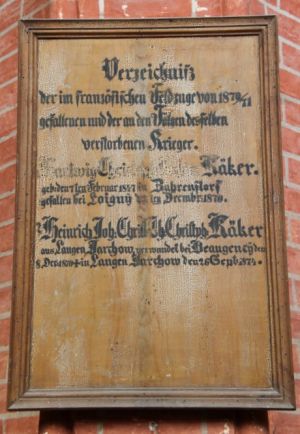 Verzeichniß
der im französischen Feldzuge von 1870/71
gefallenen und der an den Folgen desselben
verstorbenen Krieger.
Ludwig Christian Käker.
geb. den 7ten Februar 1847 in
gefallen bei Loigny Decmbr. 1870.
Heinrich Joh: Christ Christoph Käker
aus Langen Jarchow, verwundet bei Beaugency den
8. Dec. 1870 † in Langen Jarchow den 26 Sept. 1874.